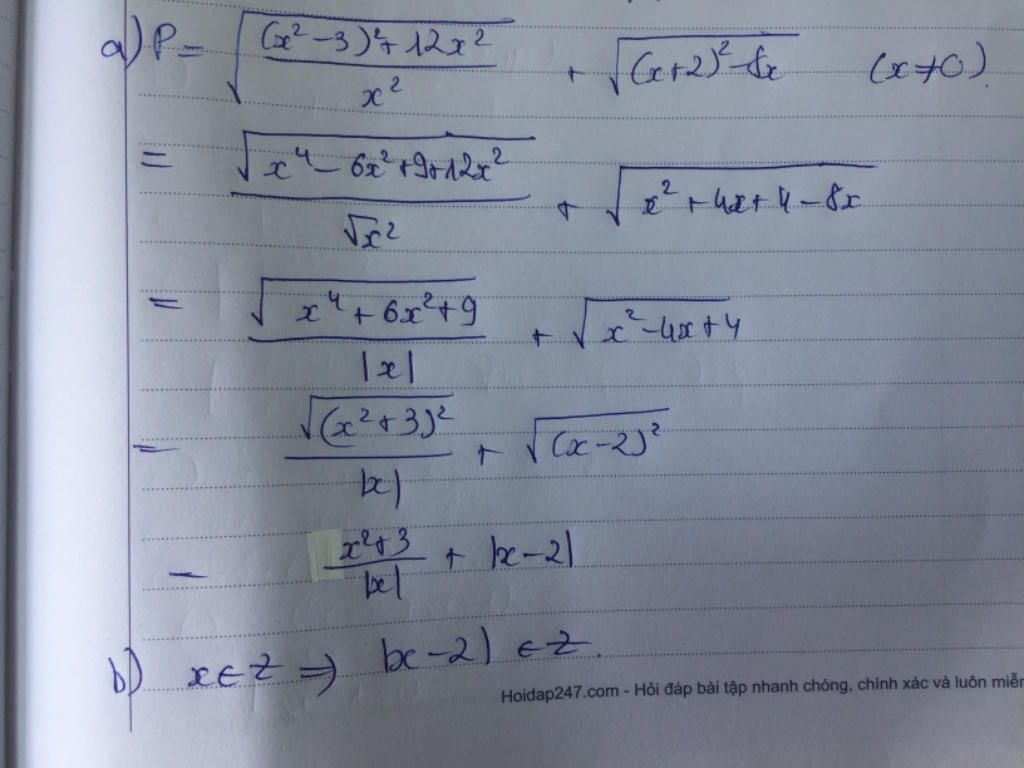 a) P = √((x² - 3)² + 12x² / x²) + √((x+2)² - 8x) (x ≠ 0)
= √(x⁴ - 6x² + 9 + 12x²) / √x² + √(x² + 4x + 4 - 8x)
= √(x⁴ + 6x² + 9) / |x| + √(x² - 4x + 4)
= √((x² + 3)²) / |x| + √((x - 2)²)
= x² + 3 / |x| + |x - 2|
b) x ∈ Z ⇒ |x - 2| ∈ Z.
Hoidap247.com - Hỏi đáp bài tập nhanh chóng, chính xác và luôn miễn